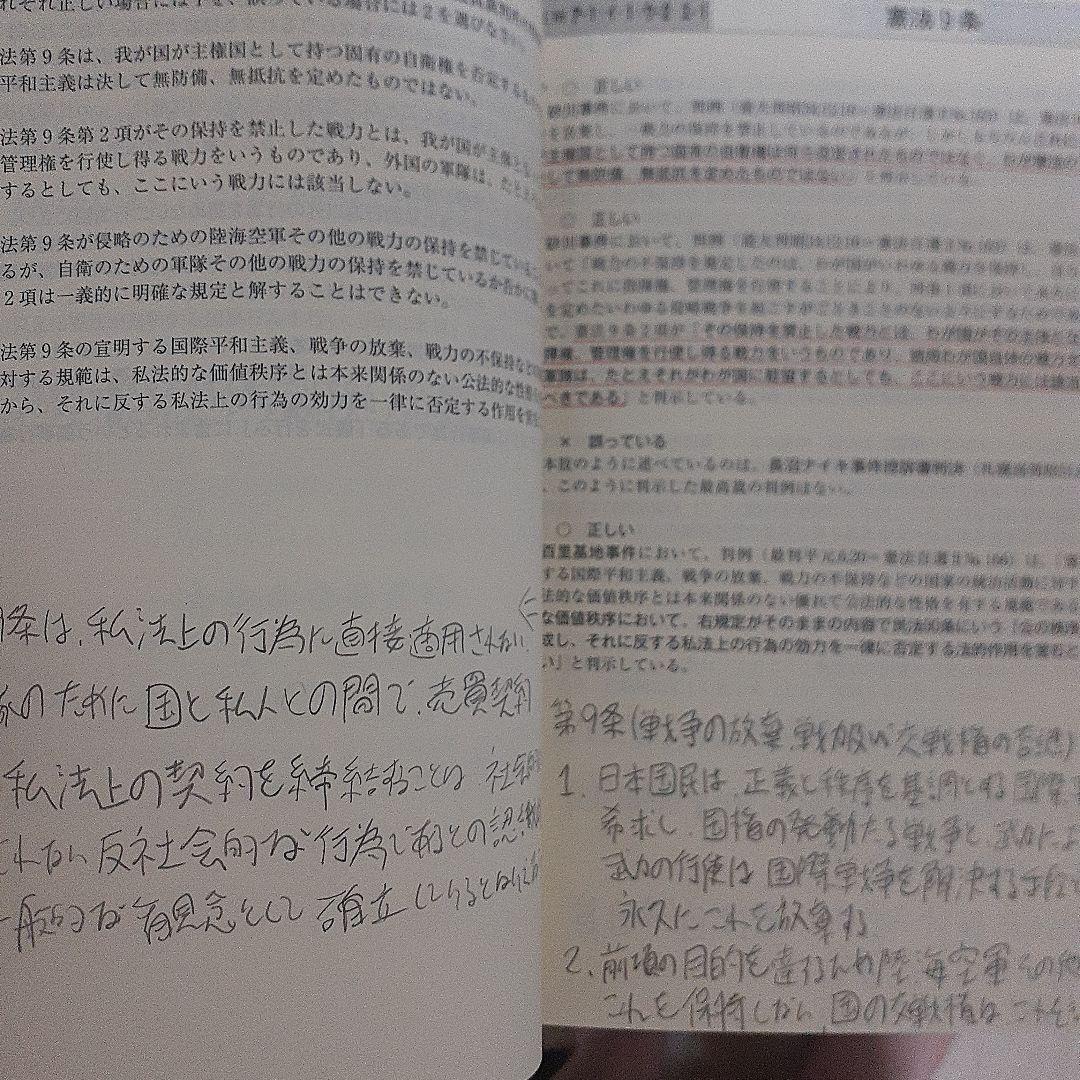 それぞれ正しい場合には1を、誤っている場合には2を選びなさい。
法第9条は、我が国が主権国として持つ固有の自衛権を否定する
平和主義は決して無防備、無抵抗を定めたものではない。
法第9条第2項がその保持を禁止した戦力とは、我が国が主体と
管理権を行使し得る戦力をいうものであり、外国の軍隊は、たとえ
するとしても、ここにいう戦力には該当しない。
法第9条が侵略のための陸海空軍その他の戦力の保持を禁じている
るが、自衛のための軍隊その他の戦力の保持を禁じているか否かに
2項は一義的に明確な規定と解することはできない。
法第9条の宣明する国際平和主義、戦争の放棄、戦力の不保持など
対する規範は、私法的な価値秩序とは本来関係のない公法的な性格
から、それに反する私法上の行為の効力を一律に否定する作用を
9条は、私法上の行為に直接適用されない。
のために国と私人との間で、売買契約
私法上の契約を締結することは 社会的
されない反社会的な行為であるとの認識
一般的な観念として確立しているとはいえ
憲法9条
○ 正しい
砂川事件において、判例
主権国として持つ固有の自衛権は何ら否定されたものではなく、わが憲法の
して無防備、無抵抗を定めたものではない」と判示している。
○ 正しい
砂川事件において、判例
いて「戦力の不保持を規定したのは、わが国がいわゆる戦力を保持し、自ら
ってこれに指揮権、管理権を行使することにより、
を定めたいわゆる侵略戦争を起こすがごときことのないようにするためで
で、憲法9条2項が「その保持を禁止した戦力とは、わが国がその主体とな
揮権、管理権を行使し得る戦力をいうものであり、結局わが国自体の戦力を
軍隊は、たとえそれがわが国に駐留するとしても、ここにいう戦力には該当
べきである」と判示している。
× 誤っている
本肢のように述べているのは、長沼ナイキ事件控訴審判決
、このように判示した最高裁の判例はない。
○ 正しい
百里基地事件において、判例（最判平元.6.20＝憲法百選ⅡNo.166）は、「憲
する国際平和主義、戦争の放棄、戦力の不保持などの国家の統治活動に対す
法的な価値秩序とは本来関係のない優れて公法的な性格を有する規範である
な価値秩序において、右規定がそのままの内容で民法90条にいう「公の秩序
成し、それに反する私法上の行為の効力を一律に否定する法的作用を営むと
い」と判示している。
第9条(戦争の放棄、戦力及び交戦権の否認)
1. 日本国民は、正義と秩序を基調とする国際
希求し、国権の発動たる戦争と、武力によ
武力の行使は、国際紛争を解決する手段
永久にこれを放棄する
2. 前項の目的を達するため、陸海空軍その他
これを保持しない。国の交戦権は、これを